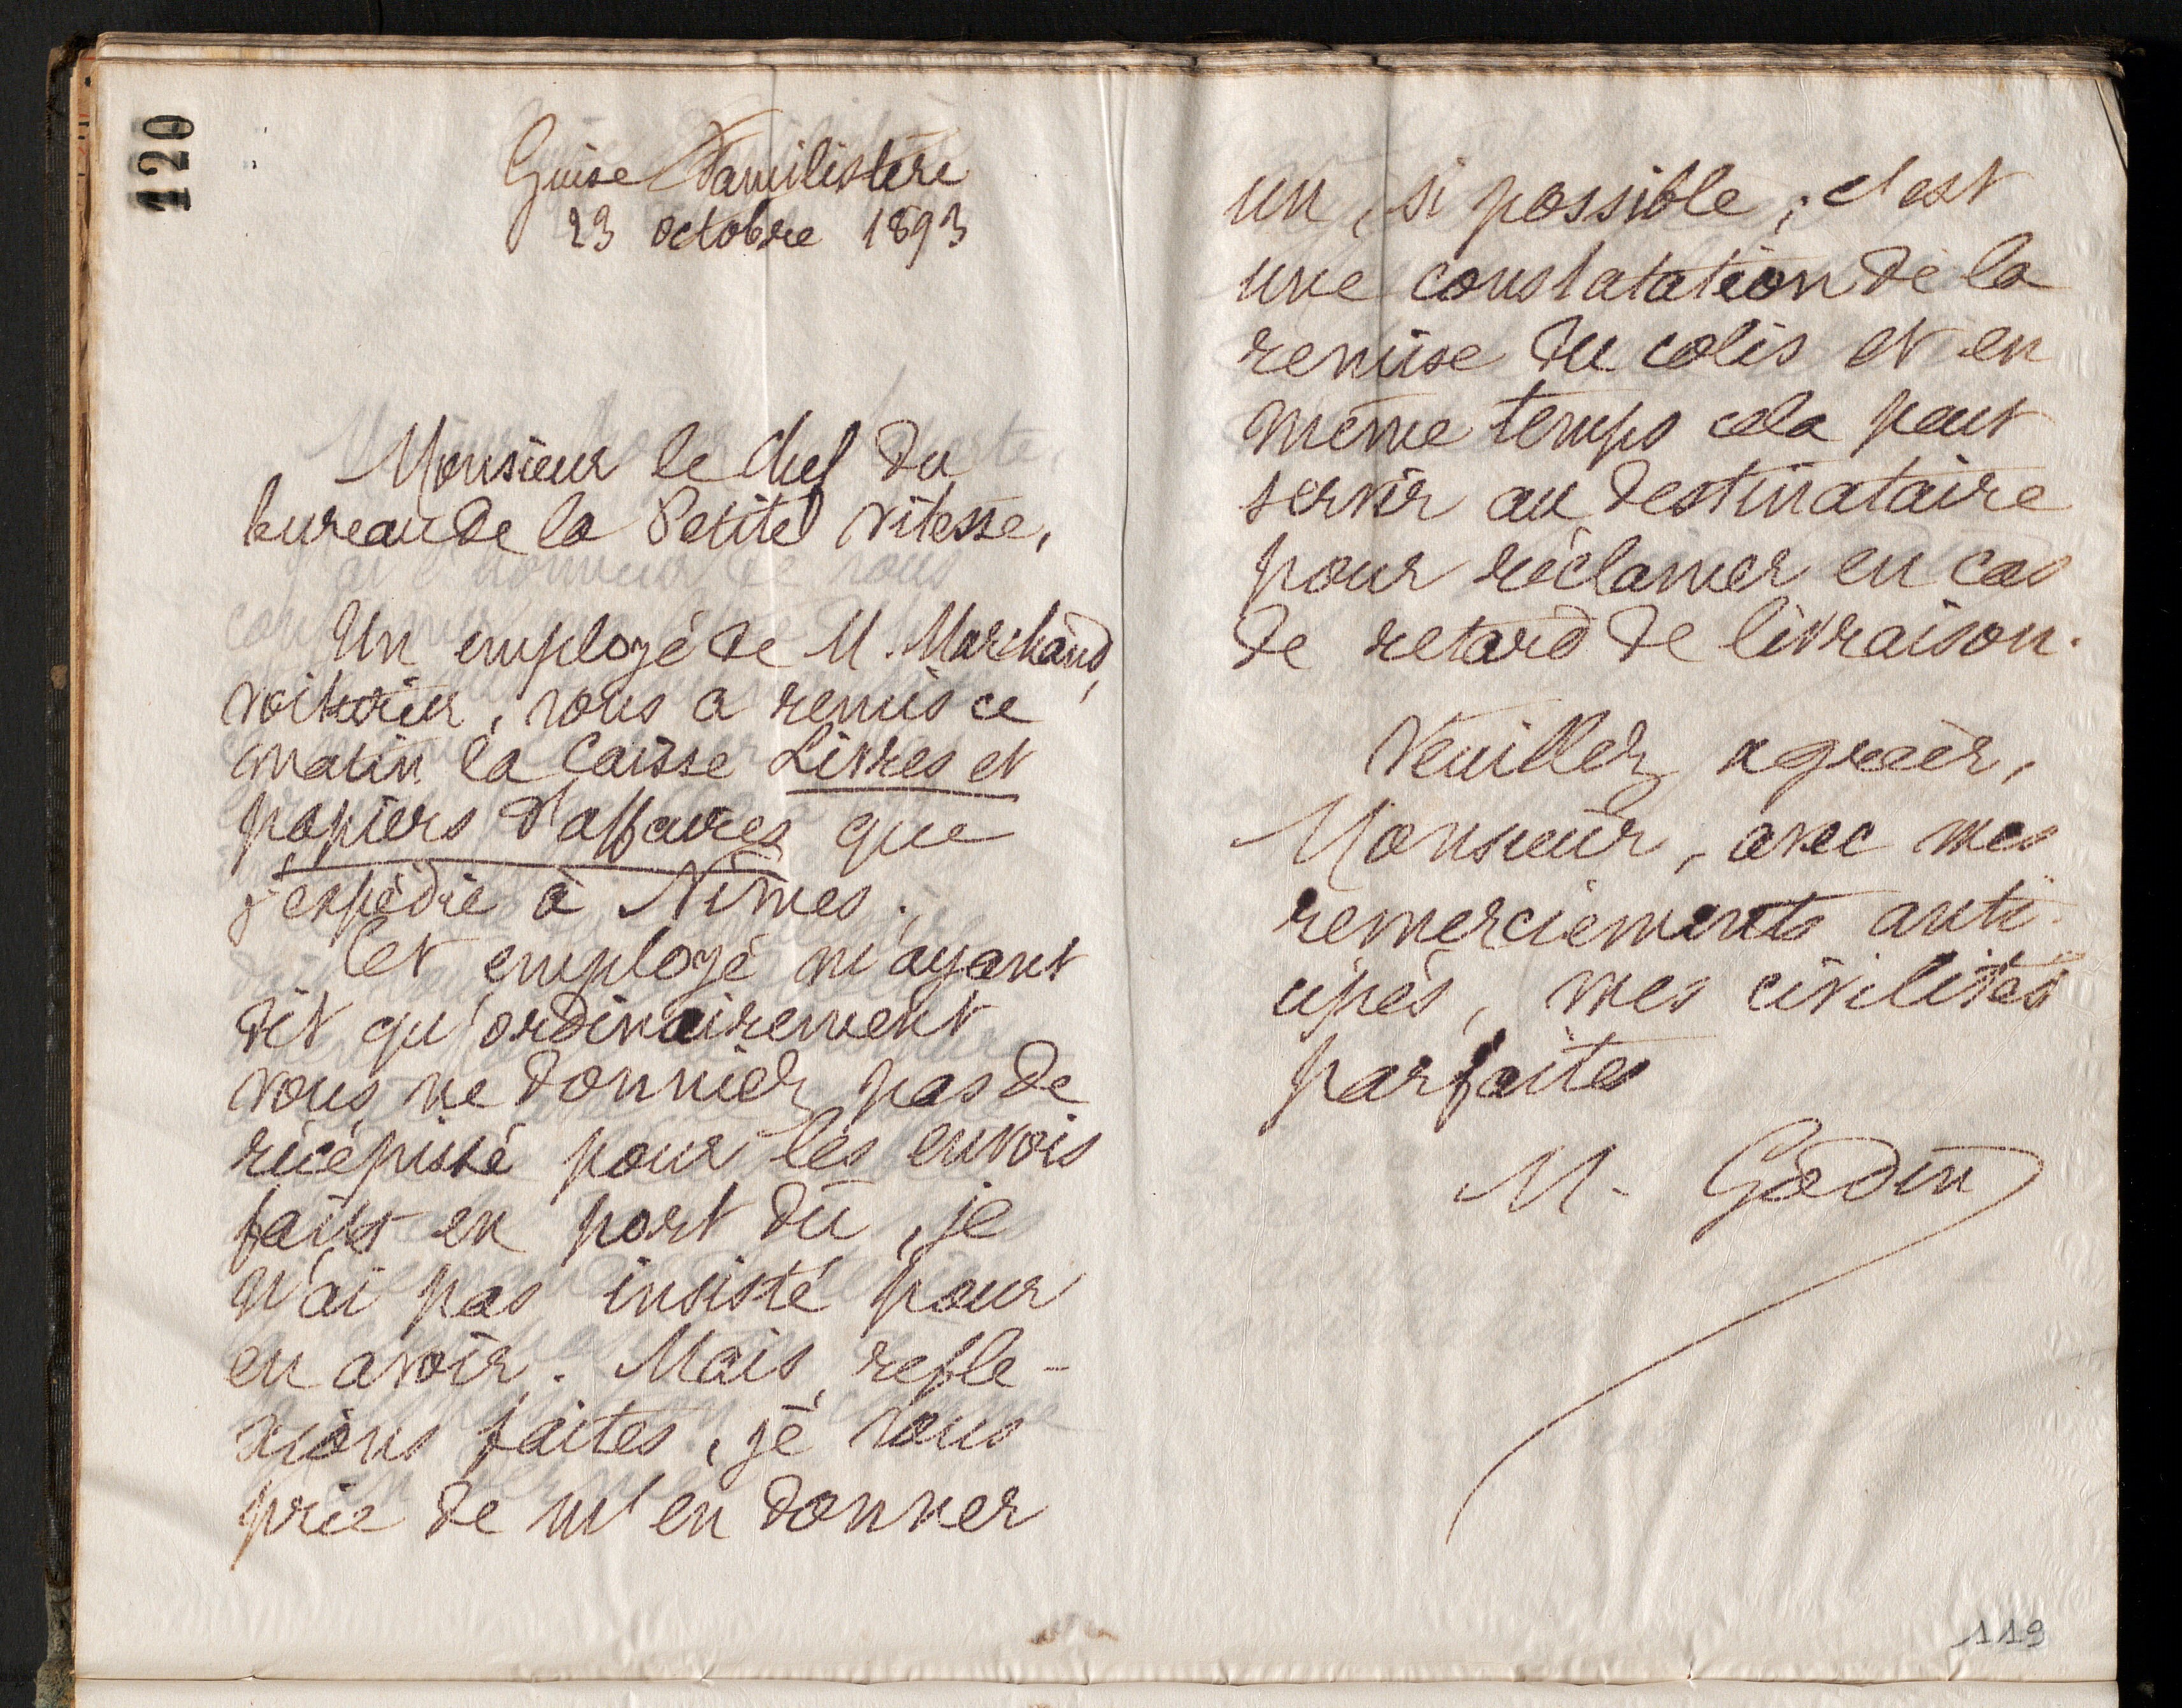 120
Guise Familistère
23 octobre 1893
Monsieur le Chef du
bureau de la Petite vitesse,
Un employé de M. Marchand,
voiturier, vous a remis ce
matin la Caisse Livres et
papiers d'affaires que
j'expédie à Nîmes.
Cet employé m'ayant
dit qu'ordinairement
vous ne donniez pas de
récépissé pour les envois
faits en port dû, je
n'ai pas insisté pour
en avoir. Mais, refle-
xions faites, je vous
prie de m'en donner
un, si possible; c'est
une constatation de la
remise du colis et en
même temps cela peut
servir au destinataire
pour réclamer en cas
de retard de livraison.
Veuillez agréer,
Monsieur, avec mes
remerciements anti-
cipés, mes civilités
parfaites
M. Godin
119